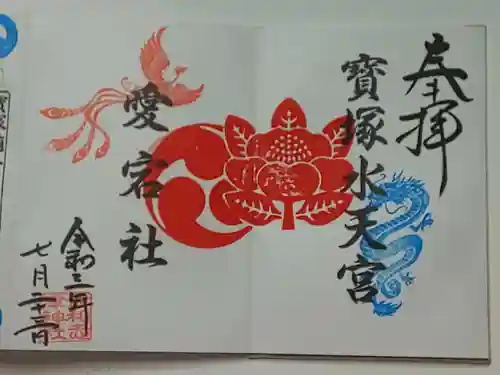 奉拝
寳塚水天宮
愛宕社
令和二年
七月二十三日